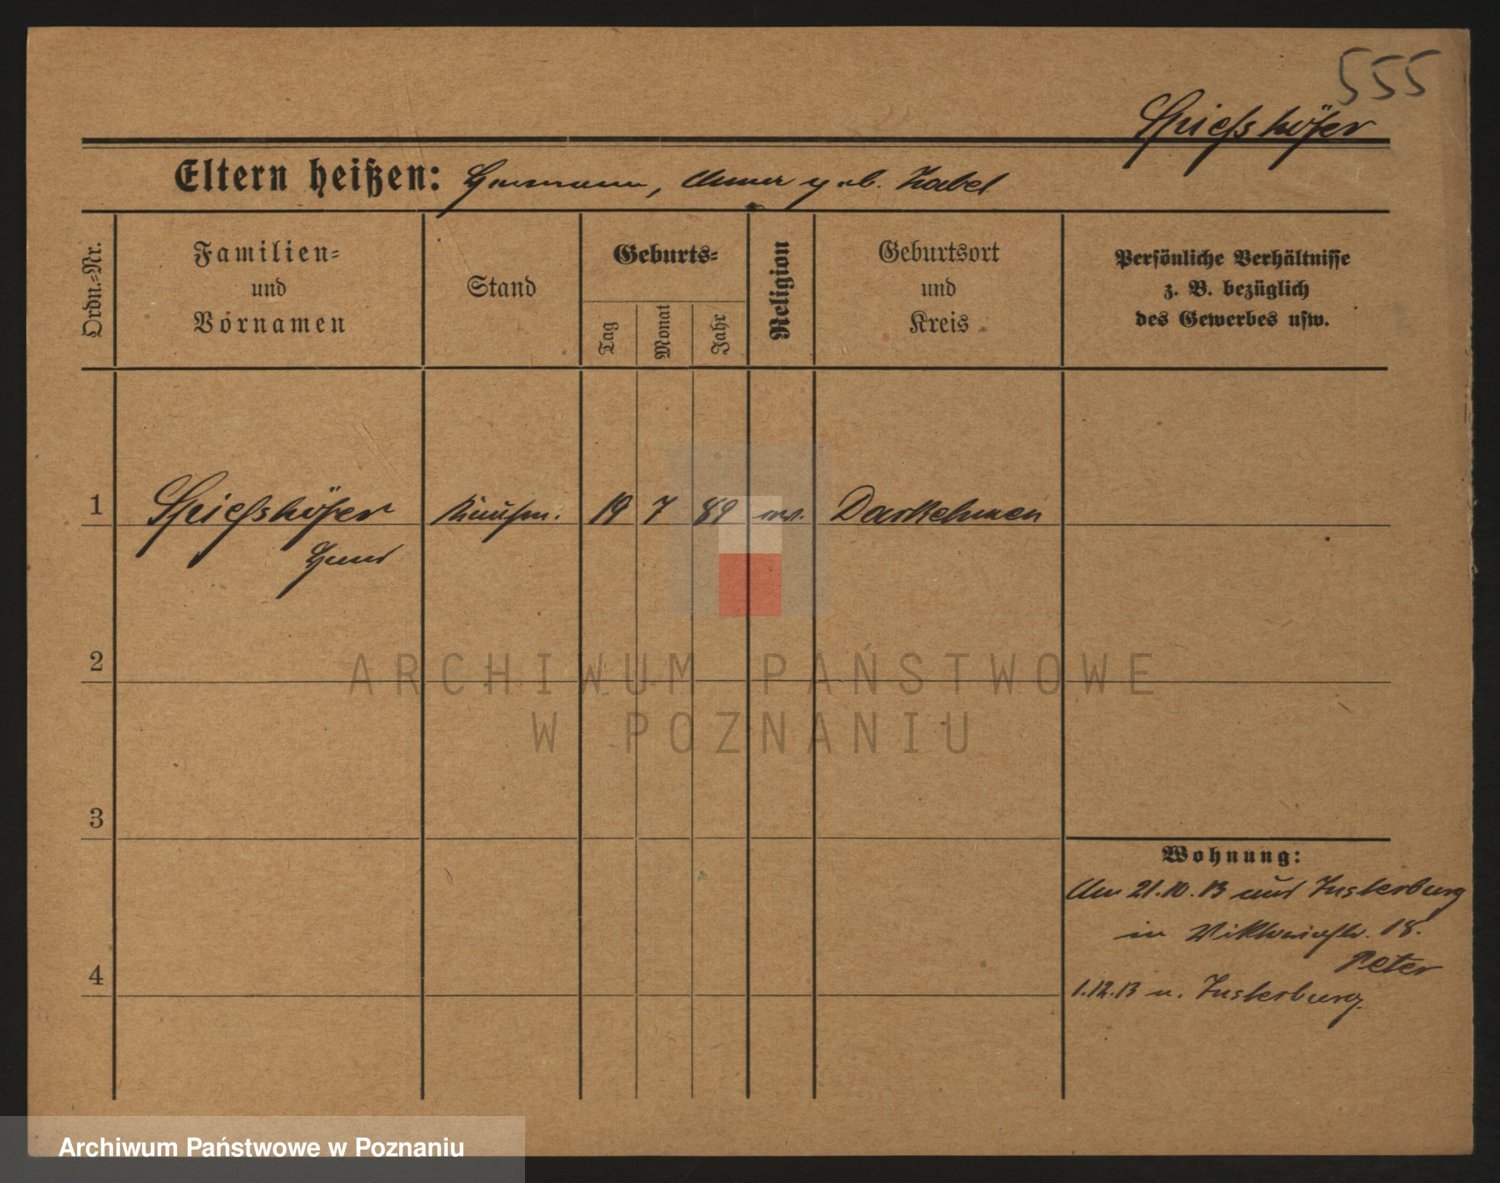 555
Spiesshöfer
Eltern heißen: Hermann, Anna geb. Zabel
Ordn.-Nr.
Familien-
und
Vornamen
Stand
Geburts-
Tag
Monat
Jahr
Religion
Geburtsort
und
Kreis
Persönliche Verhältnisse
z. B. bezüglich
des Gewerbes usw.
1 Spiesshöfer Kaufm. 19 7 89 ev. Darkehmen
2
3
4
Wohnung:
21.10.13 Insterburg
in Viktoriastr. 18.
Peter
1.12.13 n. Insterburg
ARCHIWUM PAŃSTWOWE
W POZNANIU
Archiwum Państwowe w Poznaniu